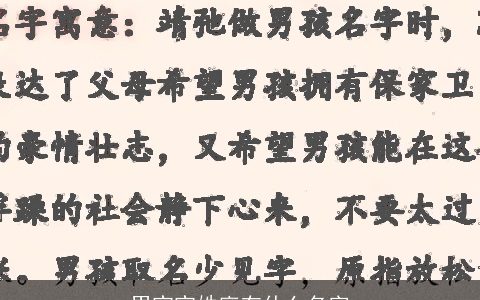 名字寓意：靖弛做男孩名字时，
表达了父母希望男孩拥有保家卫
的豪情壮志，又希望男孩能在这
躁的社会静下心来，不要太过
。男孩取名少见字，原指放松